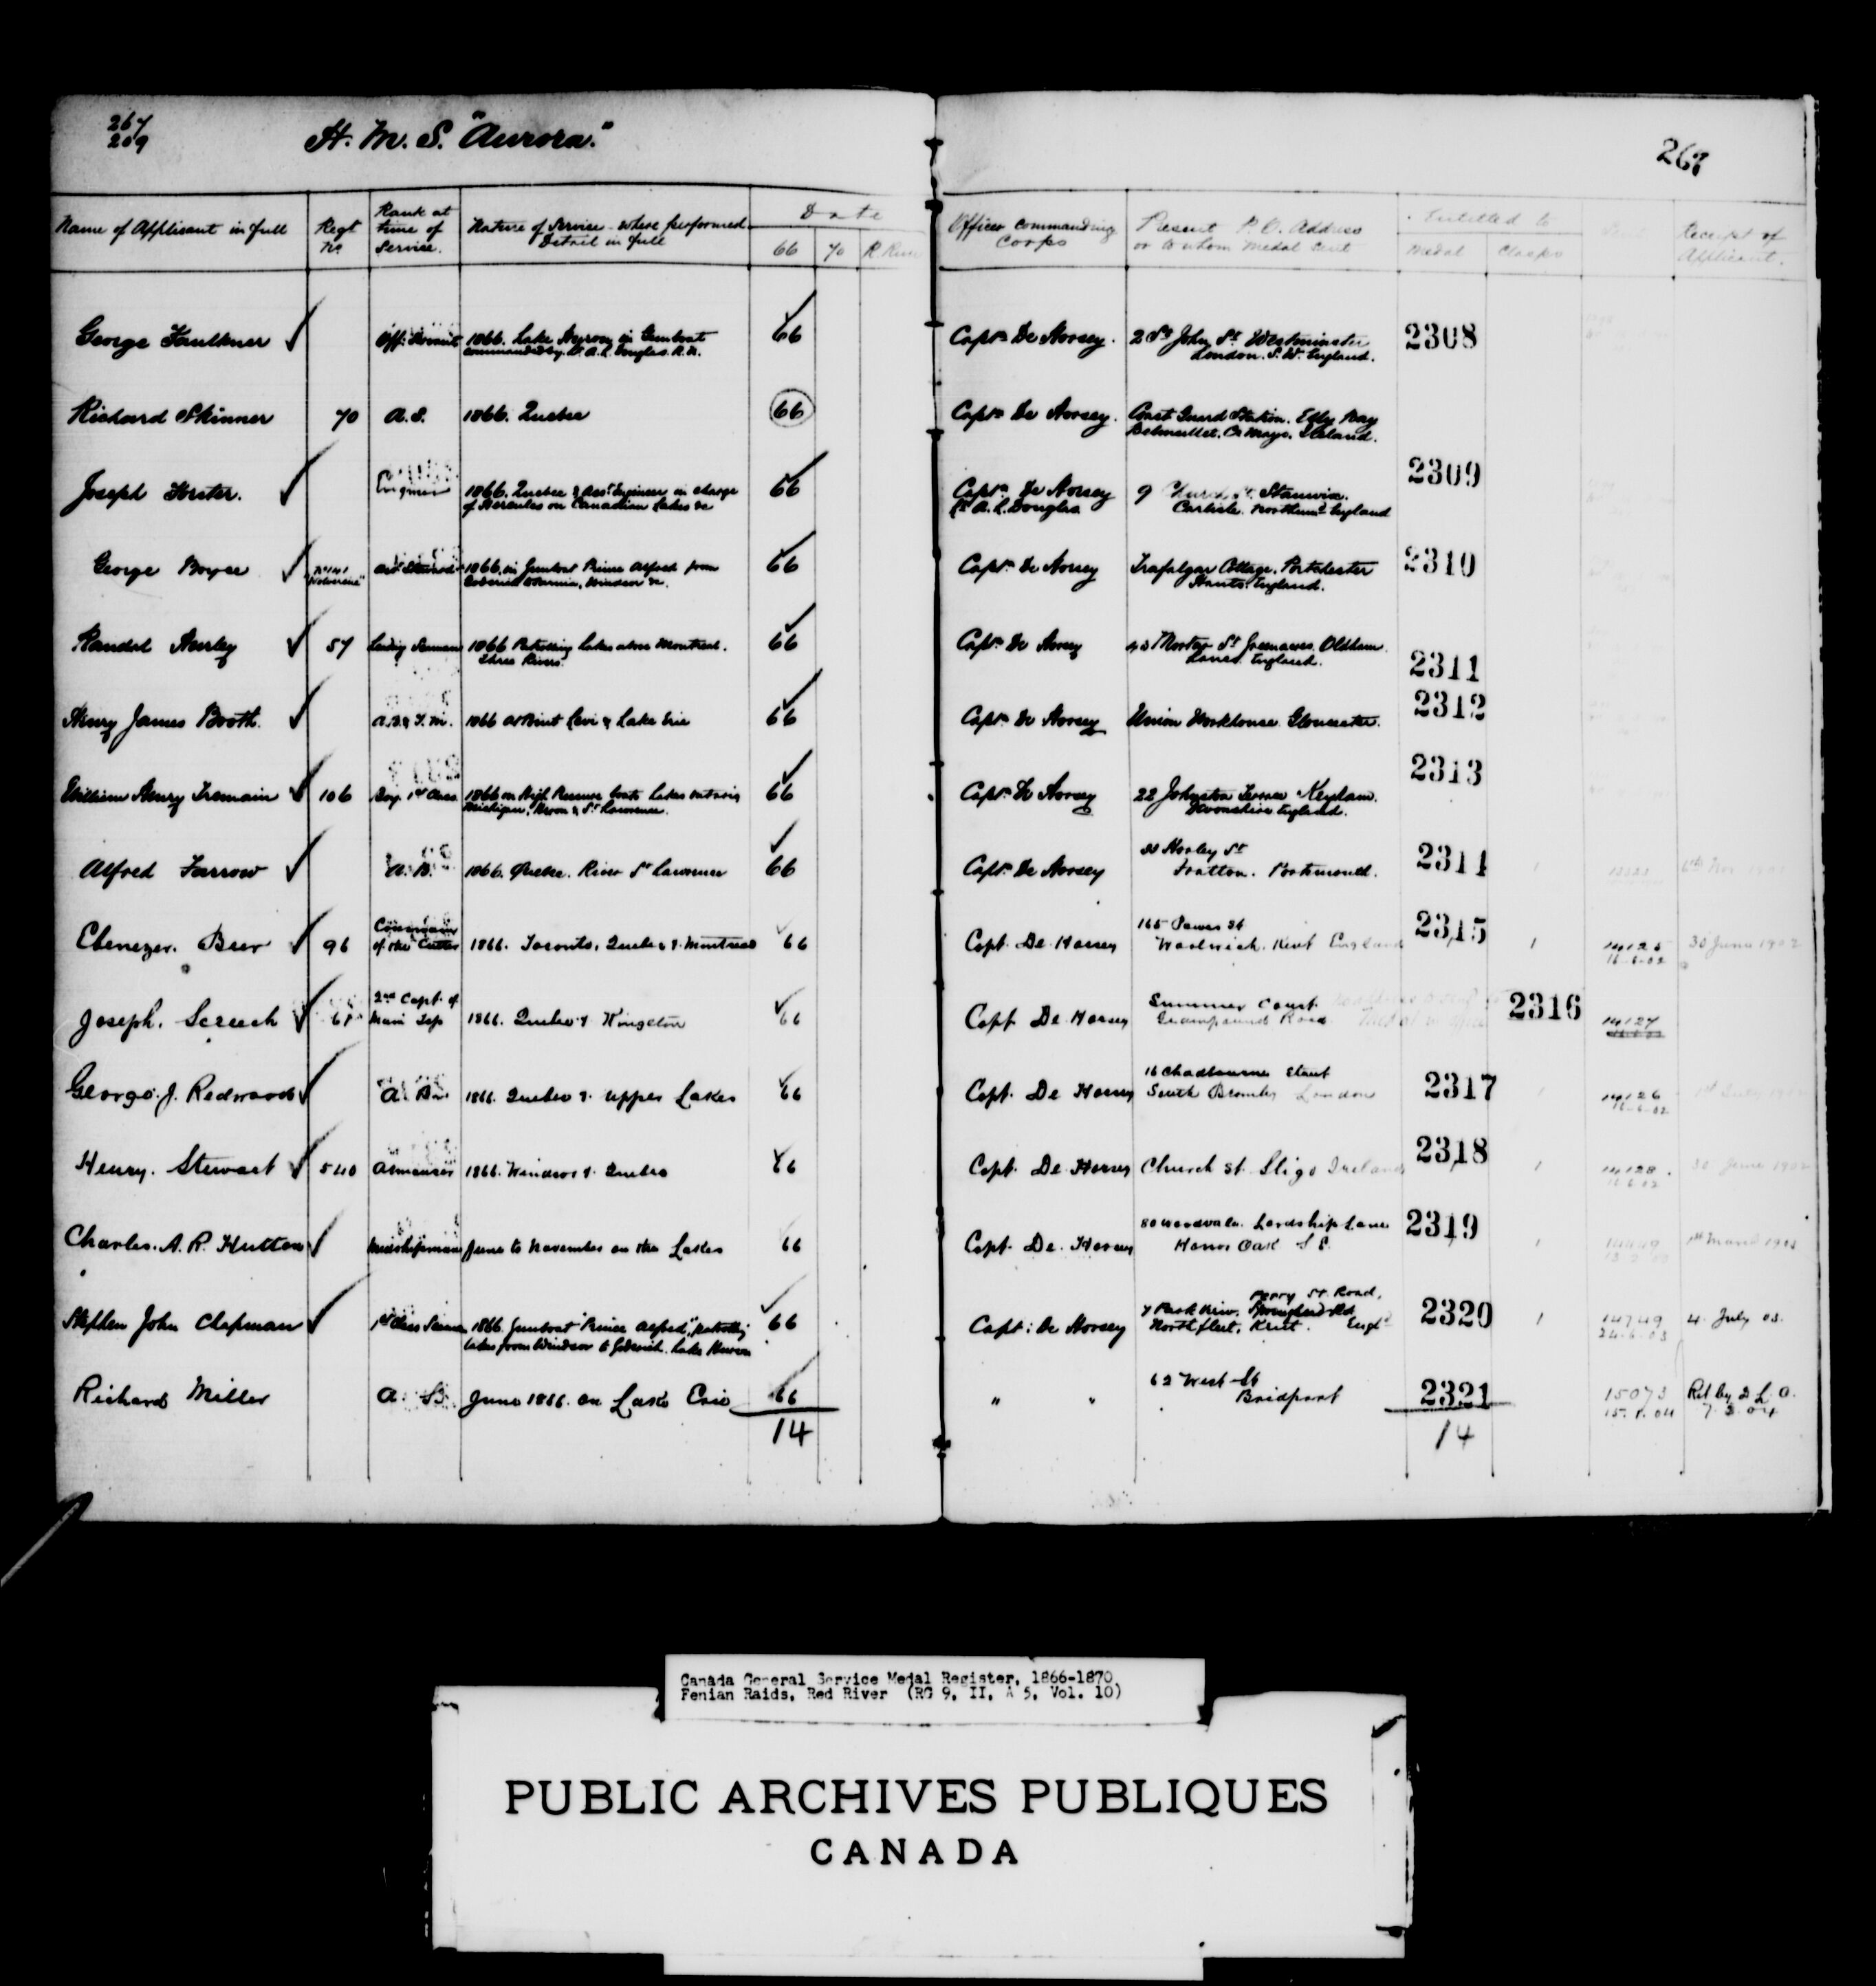 267
209
H. M. S. "Aurora."
267
Name of Applicant in full
Regt No.
Rank at time of Service.
Nature of Service - where performed. Detail in full
Date
66 70 R. River
Officer Commanding Corps
Present P. O. Address or to whom medal sent
Entitled to
Medal Clasps
Sent
Receipt of Applicant.
George Faulkner ✓ Off: Servant 1866. Lake Huron in Gunboat 66 Captn De Horsey. 2 St John St Westminster 2308
commanded by Lt. A. L. Douglas R.N. London. S.W. England.
Richard Skinner 70 A.S. 1866. Quebec 66 Captn De Horsey. Coast Guard Station. Elly Bay
Belmullet. Co Mayo. Ireland.
Joseph Forster. ✓ Engineer 1866. Quebec & Asst Engineer in charge 66 Captn De Horsey 9 Church St. Stanwix. 2309
of Hercules on Canadian Lakes &c Lt A. L. Douglas Carlisle. England
George Boyce ✓ 1866, in Gunboat Prince Alfred from 66 Captn De Horsey Trafalgar Cottage. Portchester 2310
Windsor &c. Hants. England.
Randal Hurley ✓ 57 Leading Seaman 1866 Patrolling Lakes above Montreal. 66 Captn De Horsey St Greenacres. Oldham
Three Rivers. Lancs. England. 2311
Henry James Booth. ✓ 1866 at Point Levi & Lake Erie 66 Captn De Horsey Union Workhouse. Gloucester. 2312
William Henry Tremain ✓ 106 Boy 1st Class 1866 on High Pressure boats Lakes Ontario 66 Captn De Horsey 22 Johnston Terrace Keyham. 2313
Michigan, Huron & St Lawrence. Devonshire England.
Alfred Farrow ✓ A.B. 1866. Quebec. River St Lawrence 66 Captn De Horsey St 2314
Fratton. Portsmouth.
Ebenezer. Beer ✓ 96 Coxswain 1866. Toronto, Quebec & Montreal 66 Capt. De Horsey 165 Powis St 2315 1 14125 30 June 1902
of the Cutter Woolwich. Kent England 16-6-02
Joseph. Screech ✓ 61 2nd Capt. of 1866. Quebec & Kingston 66 Capt De Horsey Summer Court. 2316 14127
Main Top Grampound Road
George. J. Redwood ✓ A. B. 1866. Quebec & Upper Lakes 66 Capt. De Horsey 16 Chadbourne Street 2317 14126
South Bromley London 16-6-02
Henry. Stewart ✓ 540 Armourer 1866. Windsor & Quebec 66 Capt. De Horsey Church St. Sligo Ireland 2318 1 14128 30 June 1902
16.6.02
Charles. A. R. Hutton ✓ Midshipman June to November on the Lakes 66 Capt. De. Horsey 80 Woodvale. Lordship Lane 2319
Honor Oak S.E.
Stephen John Chapman ✓ 1st Class Seaman 1866. Gunboat "Prince Alfred," patrolling 66 Capt: De Horsey 7 Park View. Perry St. Road, 2320 1 14749 4. July 03.
lakes from Windsor to Goderich. Lake Huron Northfleet, Kent. Engld 24-6-03
Richard Miller A. B. June 1866. on Lake Erie 66 " " 62 West St 2321 15073 Ret by D. L. O.
Bridport 15.1.04 7.3.04
14 14
Canada General Service Medal Register, 1866-1870,
Fenian Raids, Red River (RG 9, II, A 5, Vol. 10)
PUBLIC ARCHIVES PUBLIQUES
CANADA